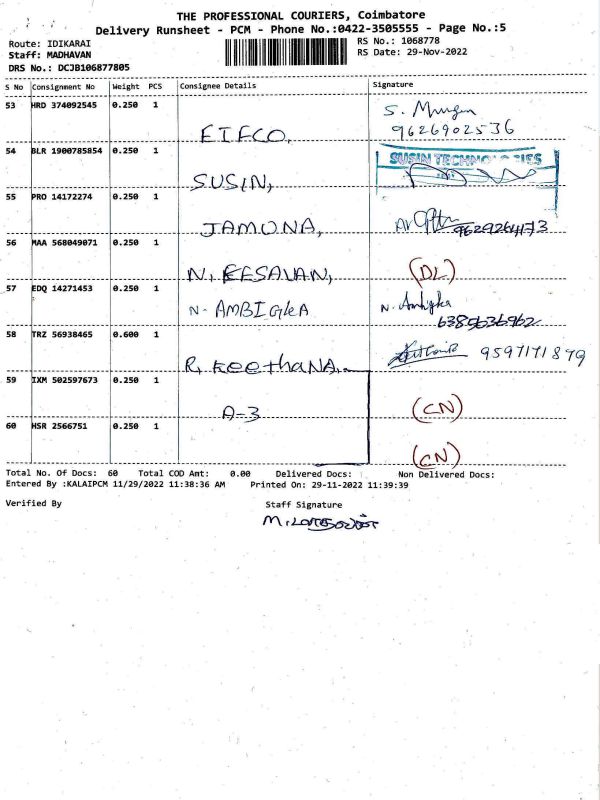 THE PROFESSIONAL COURIERS, Coimbatore
Delivery Runsheet - PCM - Phone No.:0422-3505555 - Page No.:5
Route: IDIKARAI
RS No.: 1068778
Staff: MADHAVAN
RS Date: 29-Nov-2022
DRS No.: DCJB106877805
S No Consignment No Weight PCS Consignee Details Signature
53 HRD 374092545 0.250 1
S. Murugan
9626902536
ETFCO,
54 BLR 1900785854 0.250 1
SUSIN TECHNOLOGIES
SUSIN,
55 PRO 14172274 0.250 1
JAMUNA,
9629264173
56 MAA 568049071 0.250 1
N. KESAVAN,
(DL)
57 EDQ 14271453 0.250 1
N. AMBIGKEA
N. Ambigka
6385636962
58 TRZ 56938465 0.600 1
9597171879
R, KeethaNA,
59 IXM 502597673 0.250 1
A-3
(CN)
60 HSR 2566751 0.250 1
(CN)
Total No. Of Docs: 60 Total COD Amt: 0.00 Delivered Docs: Non Delivered Docs:
Entered By :KALAIPCM 11/29/2022 11:38:36 AM Printed On: 29-11-2022 11:39:39
Verified By
Staff Signature